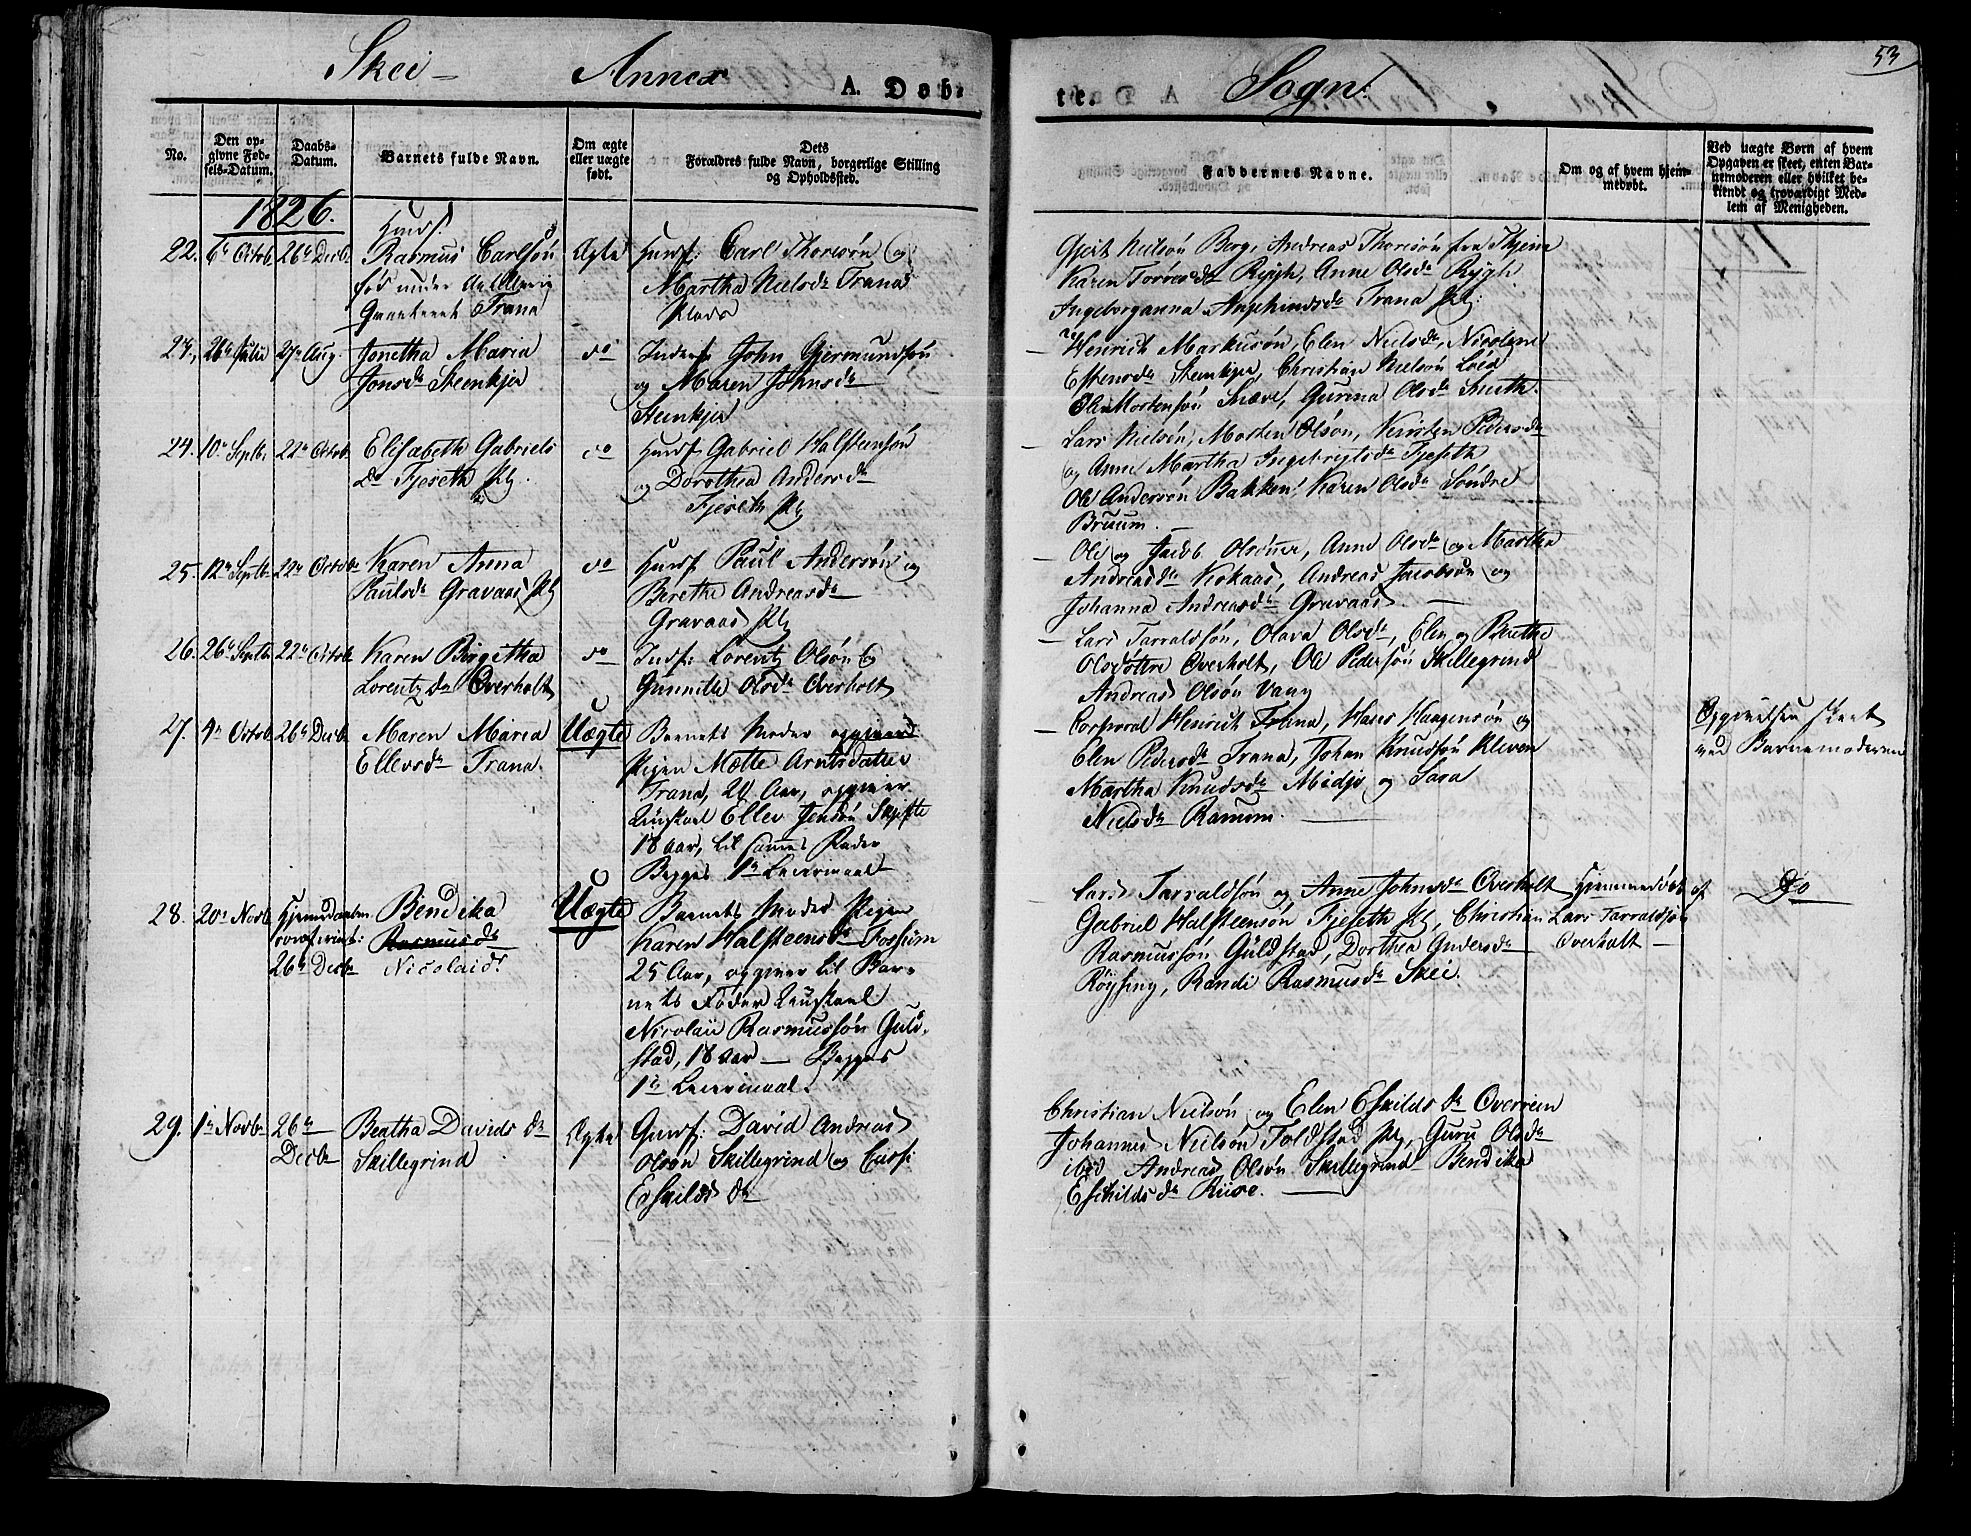 Skei - Annex Sogn.
53
A. Døb- te.
No.
Den op-
givne Fød-
sels-Datum.
Daabs-
Datum.
Barnets fulde Navn.
Om ægte
eller uægte
født.
Dets
Forældres fulde Navn, borgerlige Stilling
og Opholdssted.
Faddernes Navne.
Om og af hvem hjem-
medøbt.
Ved uægte Børn af hvem
Opgaven er skeet, enten Bar-
nemoderen eller hvilket be-
kiendt og troværdigt Med-
lem af Menigheden.
1826.
22. 6te Octob. 26de Decb.
Rasmus Carlsøn
Trana
Ægte
Huusf: Carl Thoresøn og
Martha Nielsdr Trana
Plads
Gjert Nielsøn Berg, Andreas Thoresøn fra
Karen Torresdr Rygh, Anne Olsdr Rygh
Ingeborganna Trana Pl:
26de Julii 27de Aug.
Jonetha Maria
Jonsdr Steenkjer
do
Inderst John Gjermundsøn
og Maren Johnsdr
Steenkjer
Henrich Markusøn, Elen Nielsdr, Nicoline
Estensdr Steenkjer, Christian Nielsøn
Ole Mortensøn Gurina Olsdr
24. 10de Septbr 22de Octob.
Elisabeth Gabriels
dr Fjeseth Pl.
do
Huusf Gabriel Halsteensøn
og Dorothea Andersdr
Fjeseth Pl
Lars Nielsøn, Morten Olsøn, Kirsten Pedersdr
og Anne Martha Ingebrigtsdr Fjeseth
Ole Andersøn Bakken, Karen Olsdr Søndre
Bruum. -
25. 12te Septbr 22de Octobr
Karen Anna
Paulsdr Gravaas Pl
do
Huusf Paul Andersøn og
Berethe Andreasdr
Gravaas Pl
Ole og Jacob Olsønner, Anne Olsdr og Martha
Andreasdr Andreas Jacobsøn og
Johanna Andreasdr Gravaas. -
26. 26de Septbr 22de Octobr
Karen Birgitha
Lorentzdr Overholt
do
Indf: Lorentz Olsøn og
Gunnille Olsdr Overholt
Lars Tarraldsøn, Olava Olsdr, Elen og Berethe
Olsdøttre Overholt, Ole Pedersøn Skillegrind
Andreas Olsøn Vang
27. 4de Octob 26de Decbr
Maren Maria
Ellevsdr Trana.
Uægte
Barnets Moder
Pigen Mætte Arntsdatter
Trana, 20 Aar, opgiver
Ungkarl Ellev Jensøn Skjefte
18 Aar, til sammes Fader
Begges 1te Leiermaal
Corporal Henrich Trana, Hans Haagensøn og
Elen Pedersdr Trana, Johan Knudsøn Kleven
Martha Knudsdr Midjo og Sara
Nielsdr Ramem.
Opgivelsen skeet
ved Barnemoderen
28. 20de Novb.
Hjemmedaaben
confirmeret:
26de Decbr
Bendika
Rasmusdr
Nicolaid.
Uægte
Barnets Moder Pigen
Karen Halsteensdr Fossum
25 Aar, opgiver til Bar-
nets Fader Ungkarl
Nicolai Rasmussøn Guld-
stad, 18 Aar - Begges
1te Leiermaal.
Lars Tarraldsøn og Anne Johnsdr Overholt
Gabriel Halsteensøn Fjeseth Pl, Christian
Rasmussøn Guldstad, Dorthea Andersdr
Røysing, Randi Rasmusdr Skei.
Hjemmedøbt af
Lars Tarraldsøn
Overholt -
do
29. 1te Novbr
26de
Decbr
Beatha Davidsdr
Skillegrind
Ægte
Huusf: David Andreas
Olsøn Skillegrind og
Eskildsdr
Christian Nielsøn og Elen Eskildsdr Overrein
Johannes Nielsøn Foldstad Pl, Guru Olsdr
ibid Andreas Olsøn Skillegrind Bendika
Eskildsdr Riise. -